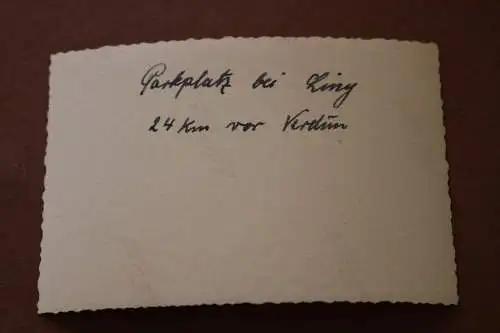 Parkplatz bei Liny
24 km vor Verdun